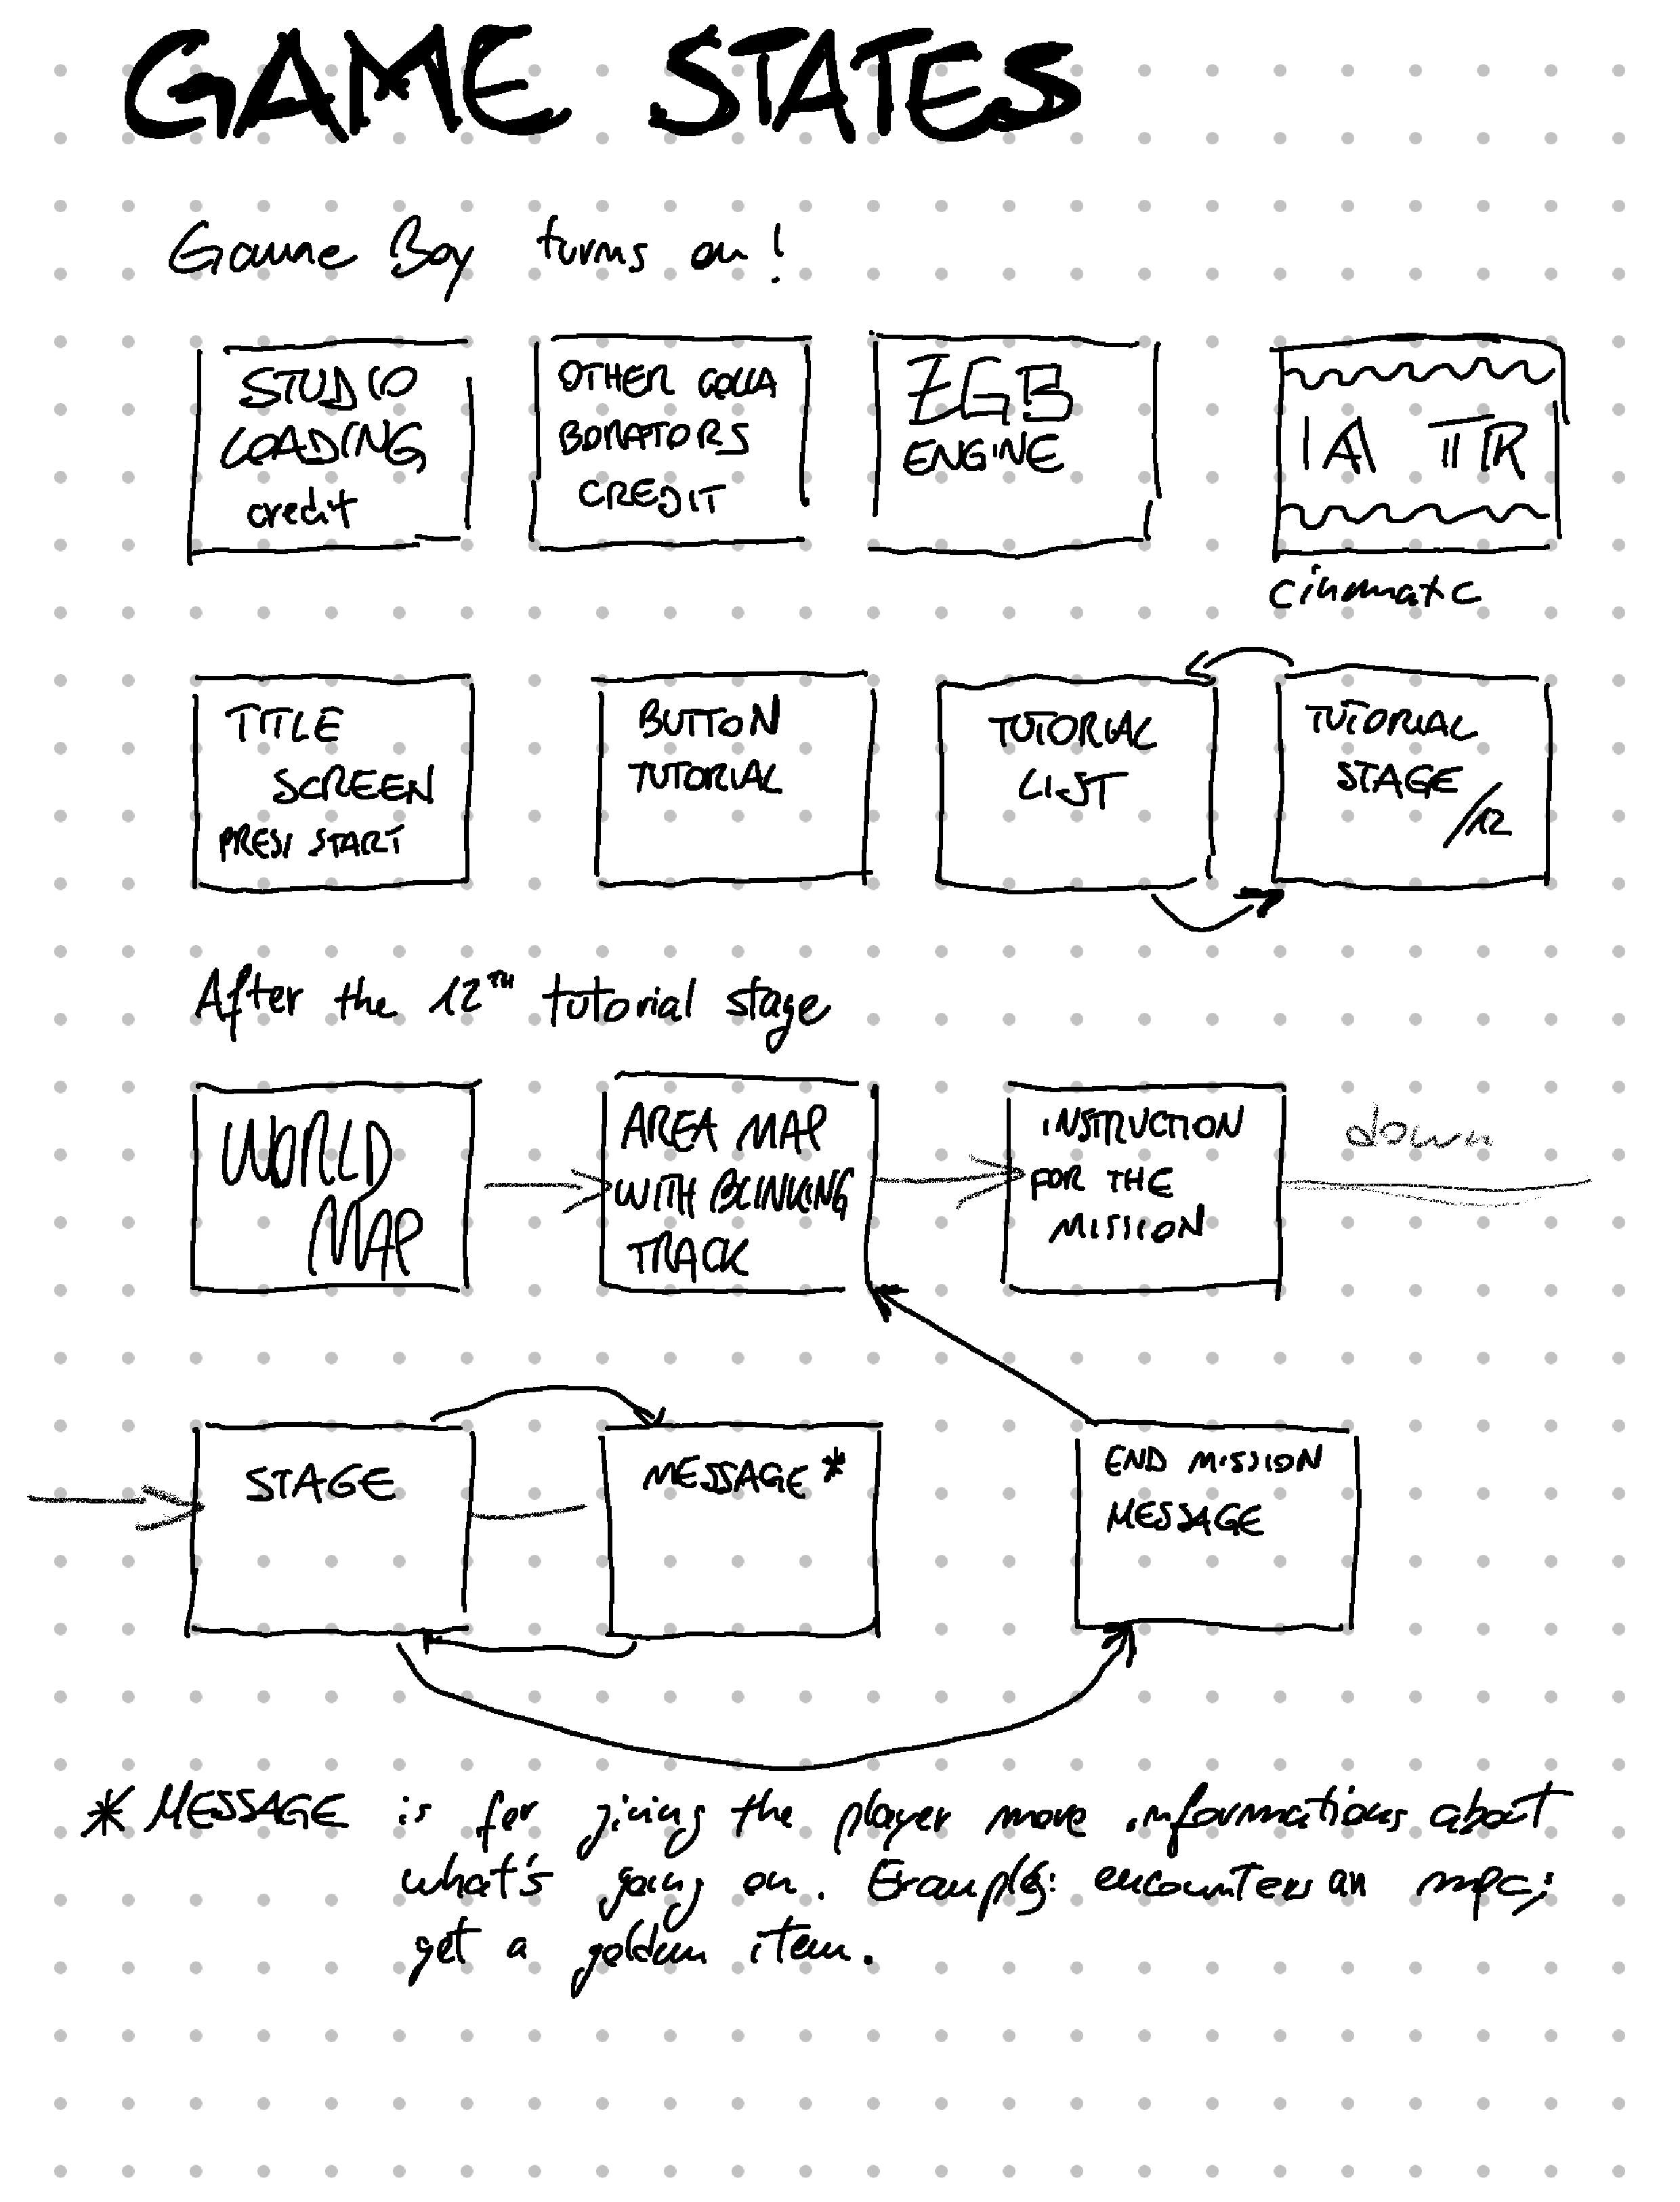 GAME STATES
Game Boy turns on!
STUDIO
LOADING
credit
OTHER COLLA
BORATORS
CREDIT
ZGB
ENGINE
cinematc
TITLE
SCREEN
PRESS START
BUTTON
TUTORIAL
TUTORIAL
LIST
TUTORIAL
STAGE
/12
After the 12TH tutorial stage
WORLD
MAP
AREA MAP
WITH BLINKING
TRACK
INSTRUCTION
FOR THE
MISSION
down
STAGE
MESSAGE *
END MISSION
MESSAGE
* MESSAGE is for giving the player more informations about
what's going on. Examples: encounters an npc;
get a golden item.